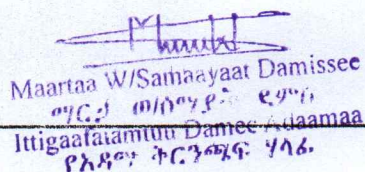 Maartaa W/Samaayaat Damissee
ማርታ ወ/ሰማያት ደምሴ
Ittigaafatamtuu Damee Adaamaa
የአዳማ ቅርንጫፍ ሃላፊ